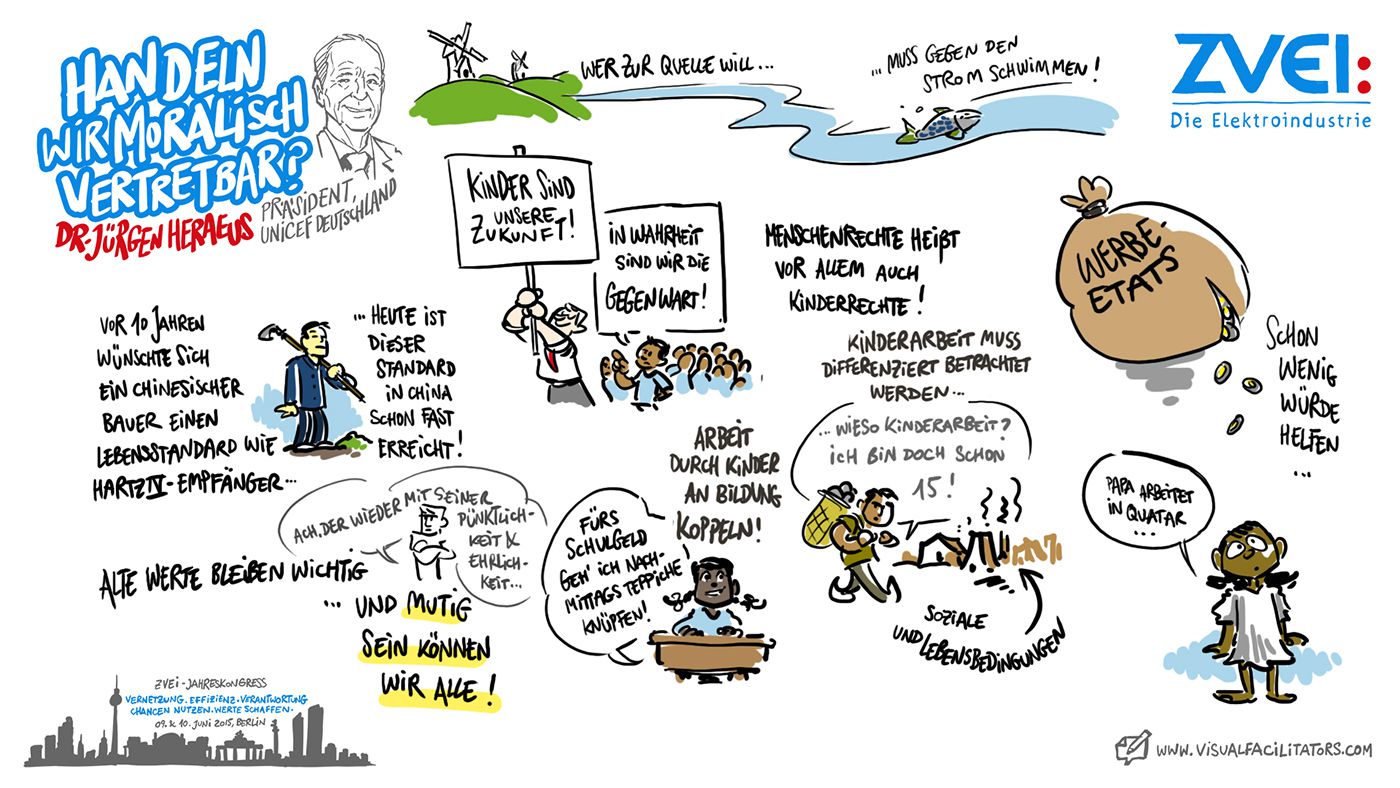 HANDELN
WIR MORALISCH
VERTRETBAR?
DR. JÜRGEN HERAEUS
PRÄSIDENT,
UNICEF DEUTSCHLAND
WER ZUR QUELLE WILL...
...MUSS GEGEN DEN
STROM SCHWIMMEN!
ZVEI:
Die Elektroindustrie
KINDER SIND
UNSERE
ZUKUNFT!
IN WAHRHEIT
SIND WIR DIE
GEGENWART!
MENSCHENRECHTE HEIßT
VOR ALLEM AUCH
KINDERRECHTE!
WERBE-
ETATS
SCHON
WENIG
WÜRDE
HELFEN
...
VOR 10 JAHREN
WÜNSCHTE SICH
EIN CHINESISCHER
BAUER EINEN
LEBENSSTANDARD WIE
HARTZ IV-EMPFÄNGER...
...HEUTE IST
DIESER
STANDARD
IN CHINA
SCHON FAST
ERREICHT!
KINDERARBEIT MUSS
DIFFERENZIERT BETRACHTET
WERDEN...
...WIESO KINDERARBEIT?
ICH BIN DOCH SCHON
15!
SOZIALE
UND LEBENSBEDINGUNGEN
ARBEIT
DURCH KINDER
AN BILDUNG
KOPPELN!
FÜRS
SCHULGELD
GEH' ICH NACH-
MITTAGS TEPPICHE
KNÜPFEN!
PAPA ARBEITET
IN QUATAR
...
ACH, DER WIEDER MIT SEINER
PÜNKTLICH-
KEIT &
EHRLICH-
KEIT...
ALTE WERTE BLEIBEN WICHTIG
... UND MUTIG
SEIN KÖNNEN
WIR ALLE!
ZVEI-JAHRESKONGRESS
VERNETZUNG. EFFIZIENZ. VERANTWORTUNG
CHANCEN NUTZEN. WERTE SCHAFFEN.
09. & 10. JUNI 2015, BERLIN
WWW.VISUALFACILITATORS.COM